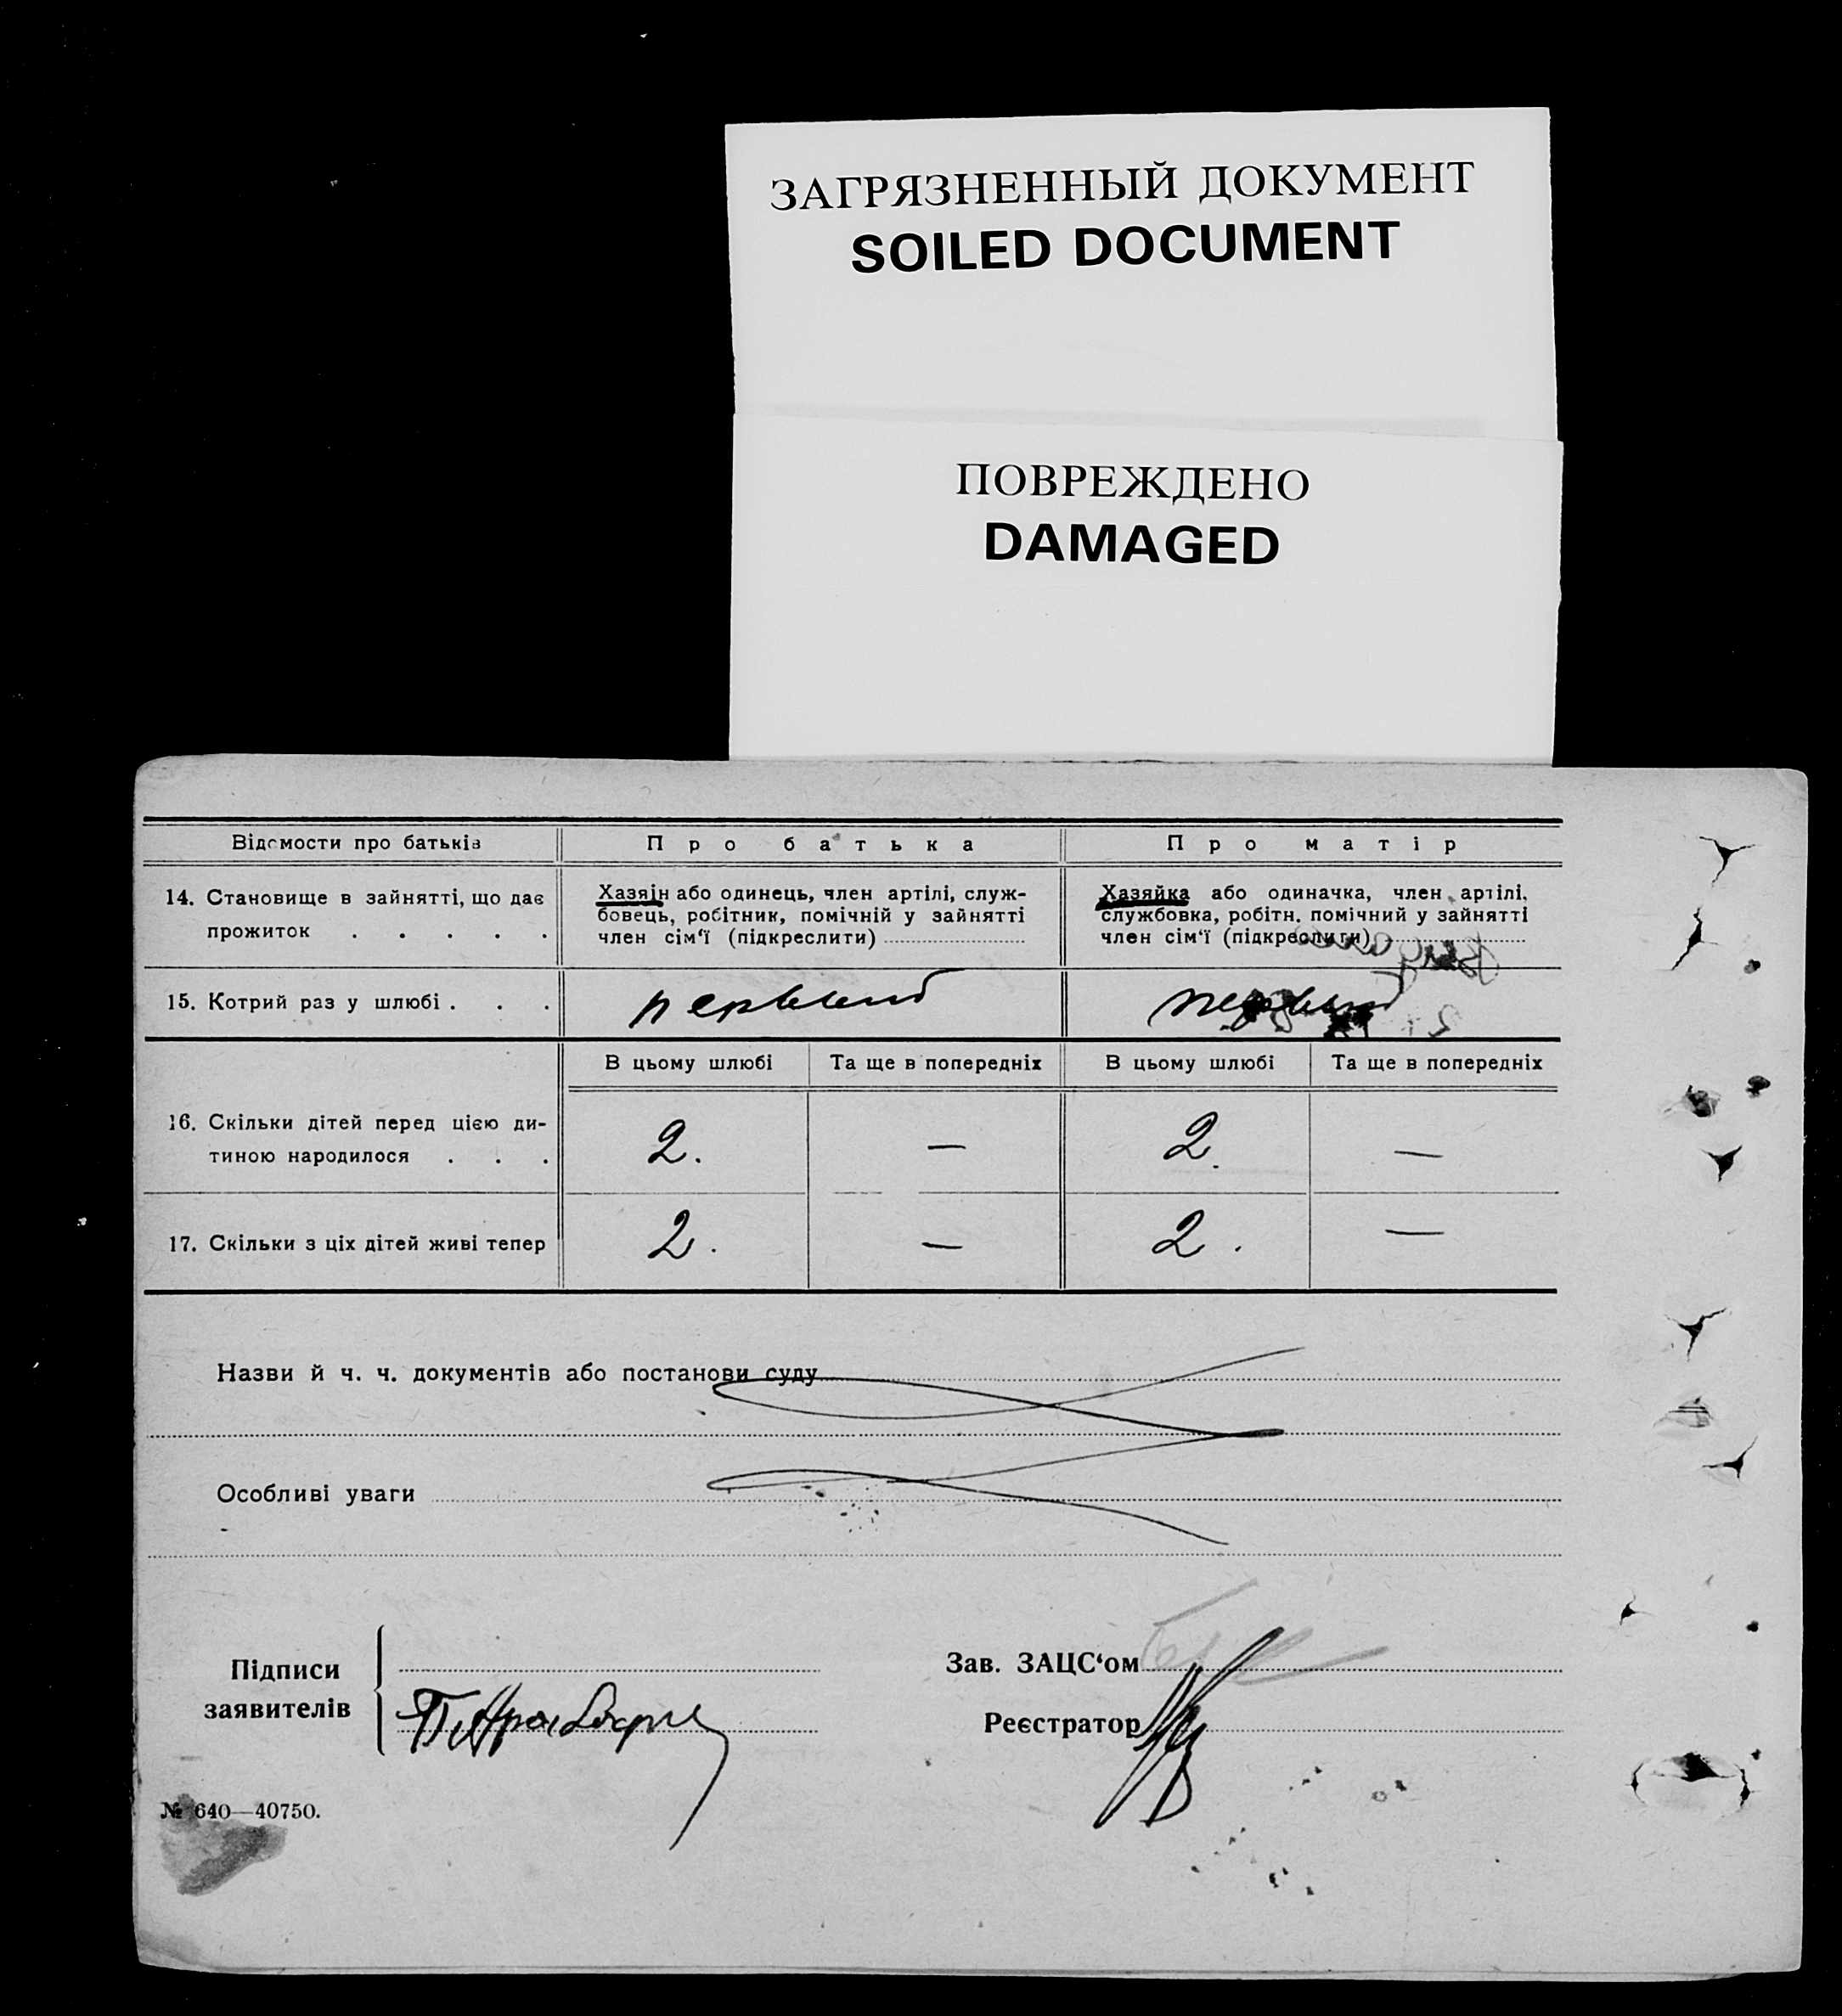 ЗАГРЯЗНЕННЫЙ ДОКУМЕНТ
SOILED DOCUMENT
ПОВРЕЖДЕНО
DAMAGED
Відомости про батьків Про батька Про матір
14. Становище в зайнятті, що дає
прожиток . . . . .
Хазяїн або одинець, член артілі, служ-
бовець, робітник, помічній у зайнятті
член сім‘ї (підкреслити)
Хазяйка або одиначка, член артілі,
службовка, робітн. помічний у зайнятті
член сім‘ї (підкреслити)
15. Котрий раз у шлюбі . . . первый первый
В цьому шлюбі Та ще в попередніх В цьому шлюбі Та ще в попередніх
16. Скільки дітей перед цією ди-
тиною народилося . . . 2. — 2. —
17. Скільки з ціх дітей живі тепер 2. — 2. —
Назви й ч. ч. документів або постанови суду
Особливі уваги
Підписи
заявителів
Зав. ЗАЦС‘ом
Реєстратор
№ 640—40750.